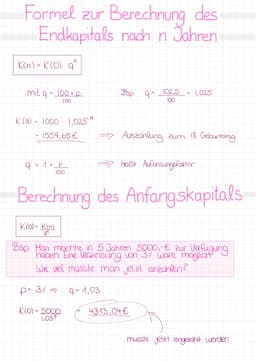 Formel zur Berechnung des
Endkapitals nach n Jahren
K(n) = K(0) · qⁿ
mit q = 100 + p / 100
Bsp q = 102,5 / 100 = 1,025
= 1559,65 €
⇒ Auszahlung zum 18 Geburtstag
q = 1 + p / 100
⇒ heißt Aufzinsungsfaktor
Berechnung des Anfangskapitals
K(0) = K(n) / qⁿ
Bsp Man möchte in 5 Jahren 5000,- € zur Verfügung
haben Eine Verzinsung von 3% wäre möglich
Wie viel müsste man jetzt einzahlen?
p = 3% ⇒ q = 1,03
K(0) = 5000 / 1,03⁵ = 4313,04 €
müsste jetzt eingezahlt werden